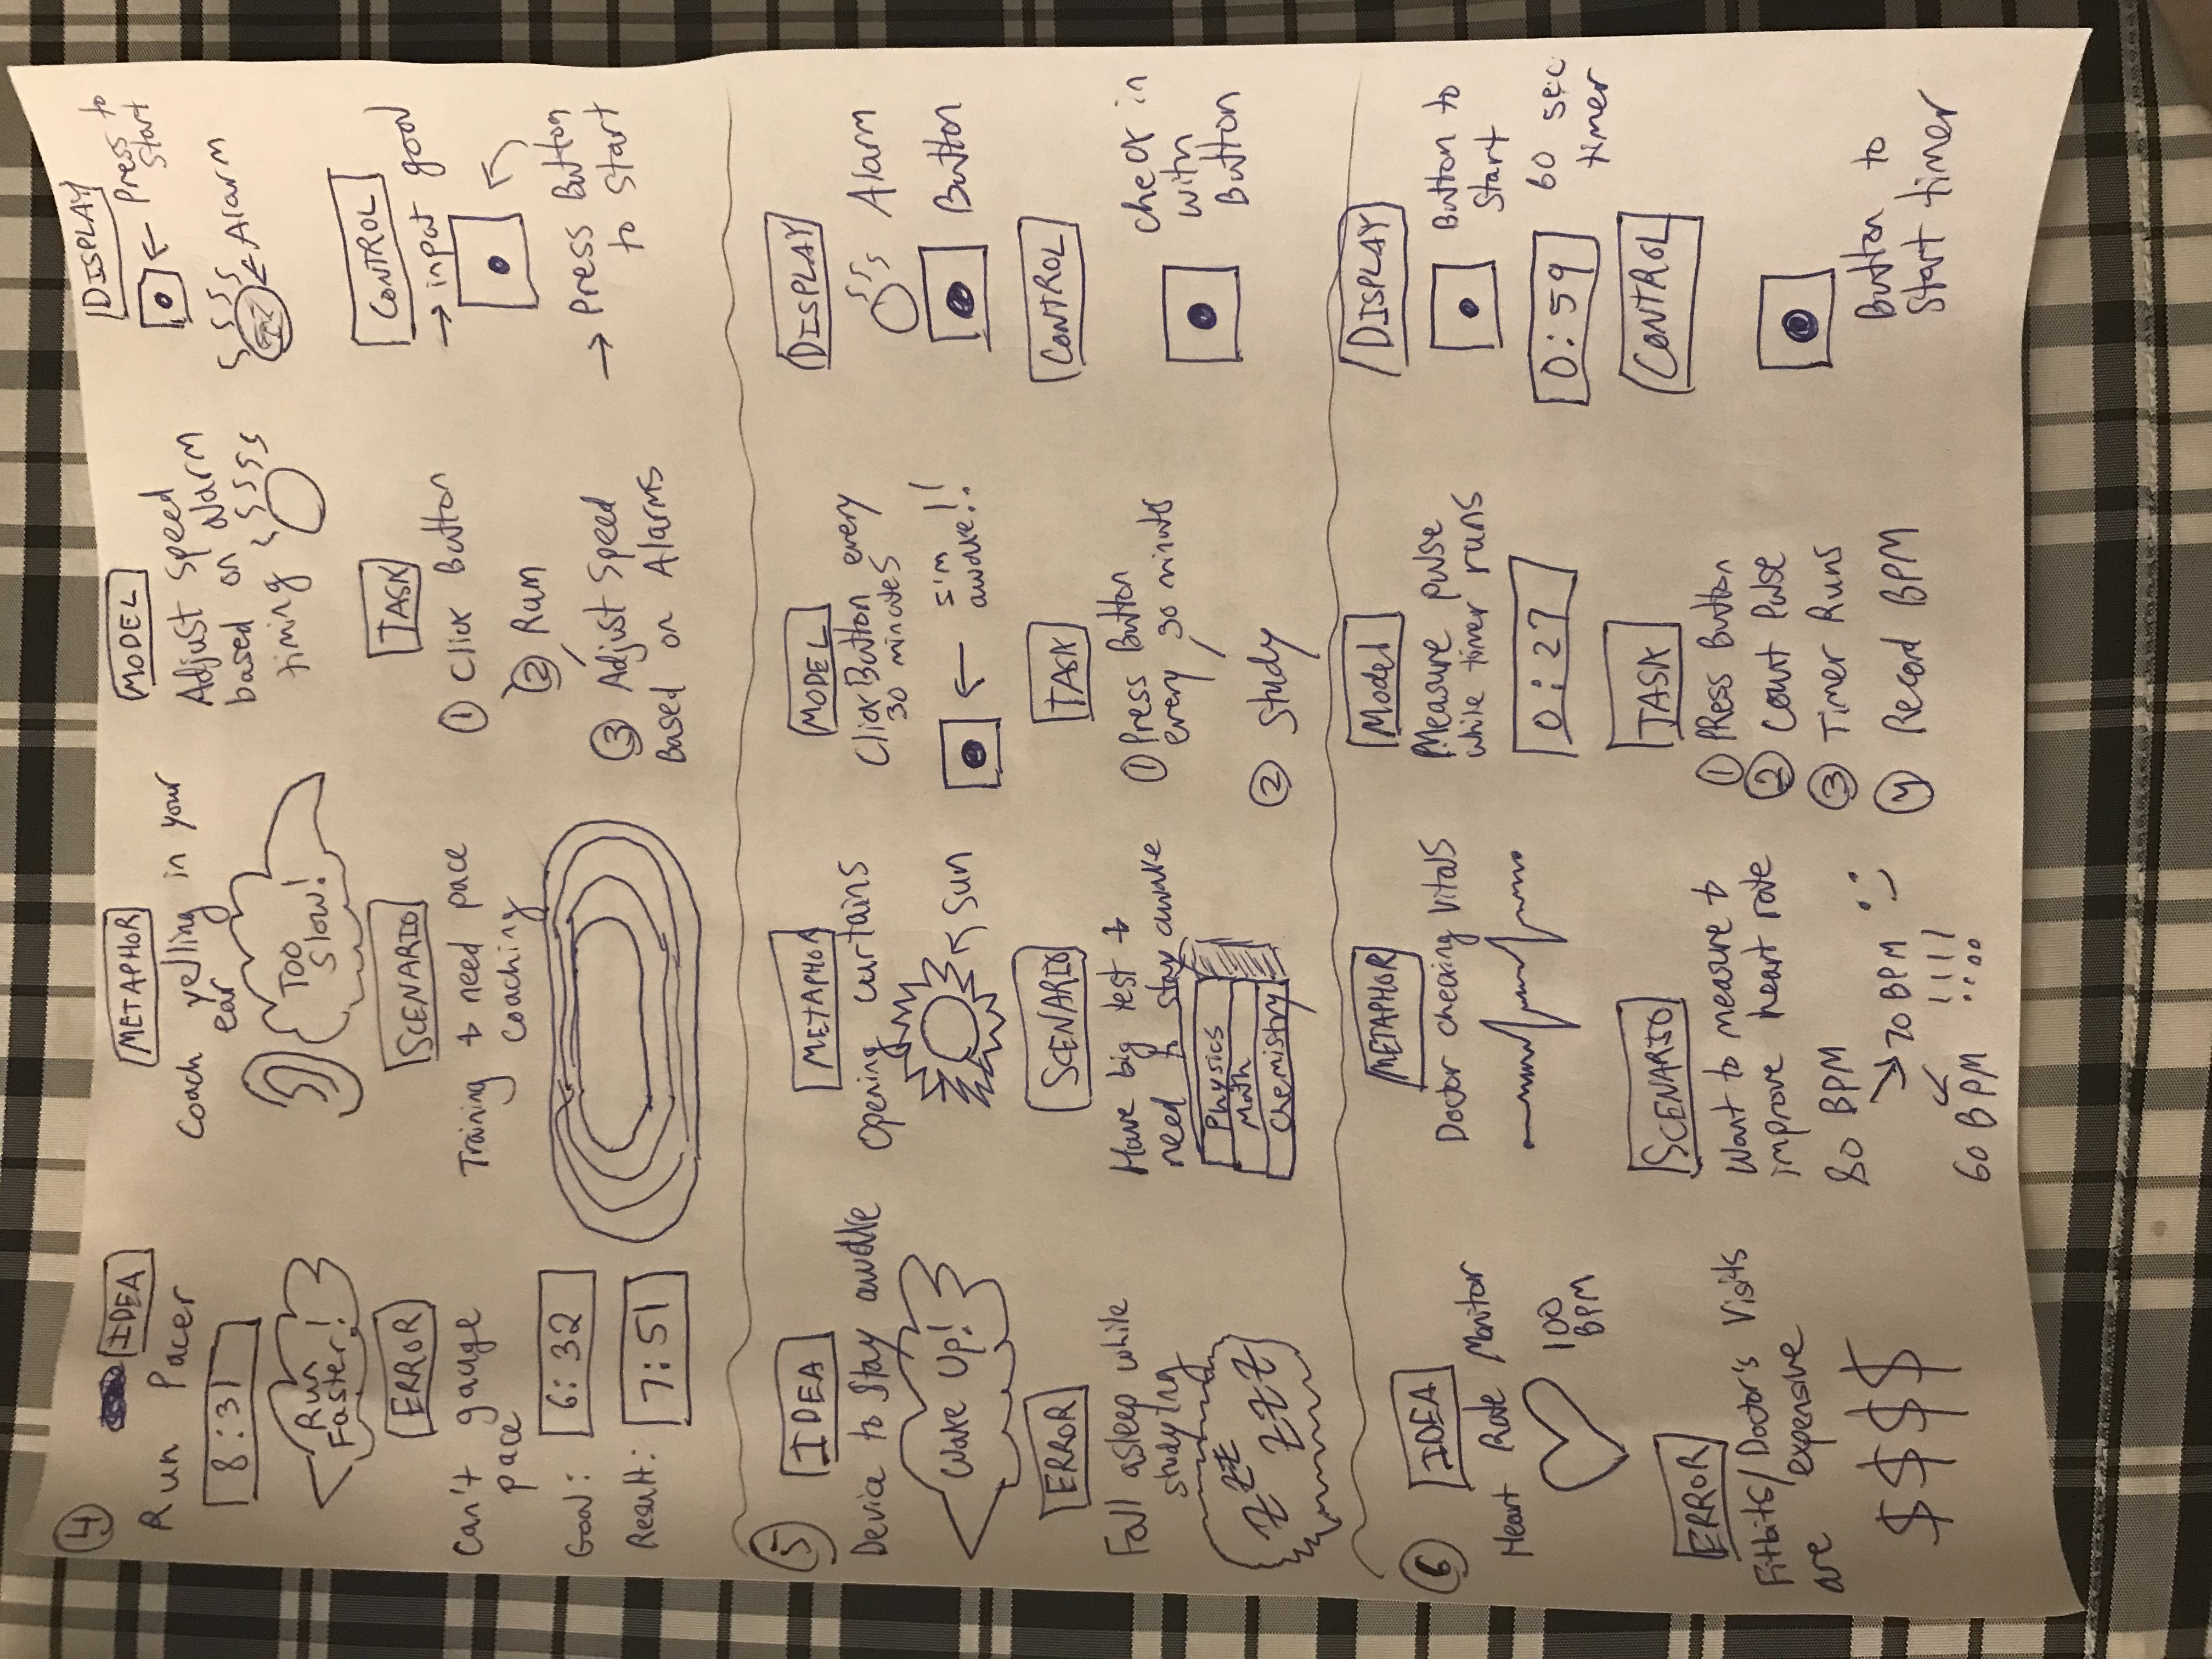 4
IDEA
Run Pacer
8:31
Run
Faster!
METAPHOR
Coach yelling in your
ear
Too
Slow!
MODEL
Adjust Speed
based on alarm
timing
DISPLAY
Press to
Start
Alarm
ERROR
Can't gauge
pace
Goal: 6:32
Result: 7:51
SCENARIO
Training & need pace
coaching
TASK
① Click Button
② Run
③ Adjust Speed
Based on Alarms
CONTROL
→ input goal
→ Press Button
to Start
5
IDEA
Device to Stay awake
Wake Up!
METAPHOR
Opening curtains
Sun
MODEL
Click Button every
30 minutes
I'm
awake!!
DISPLAY
Alarm
Button
ERROR
Fall asleep while
studying
zzz
zzz
SCENARIO
Have big test &
need to stay awake
Physics
Math
Chemistry
TASK
① Press Button
every 30 minutes
② Study
CONTROL
Check in
with
Button
6
IDEA
Heart Rate Monitor
100
BPM
METAPHOR
Doctor checking Vitals
Model
Measure pulse
while timer runs
0:27
DISPLAY
Button to
Start
0:59
60 sec
timer
ERROR
Fitbits/Doctor's Visits
are expensive
$$$$
SCENARIO
Want to measure &
improve heart rate
80 BPM
70 BPM
60 BPM !!!!
TASK
① PRess Button
② Count Pulse
③ Timer Runs
④ Record BPM
CONTROL
Button to
Start timer